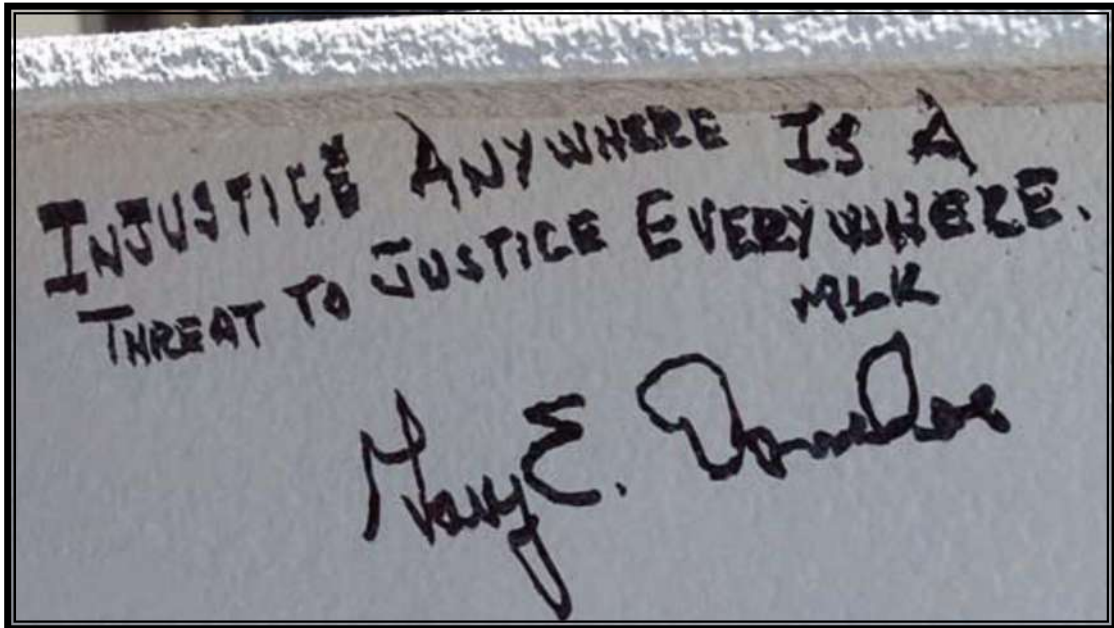 INJUSTICE ANYWHERE IS A
THREAT TO JUSTICE EVERYWHERE.
MLK
E.